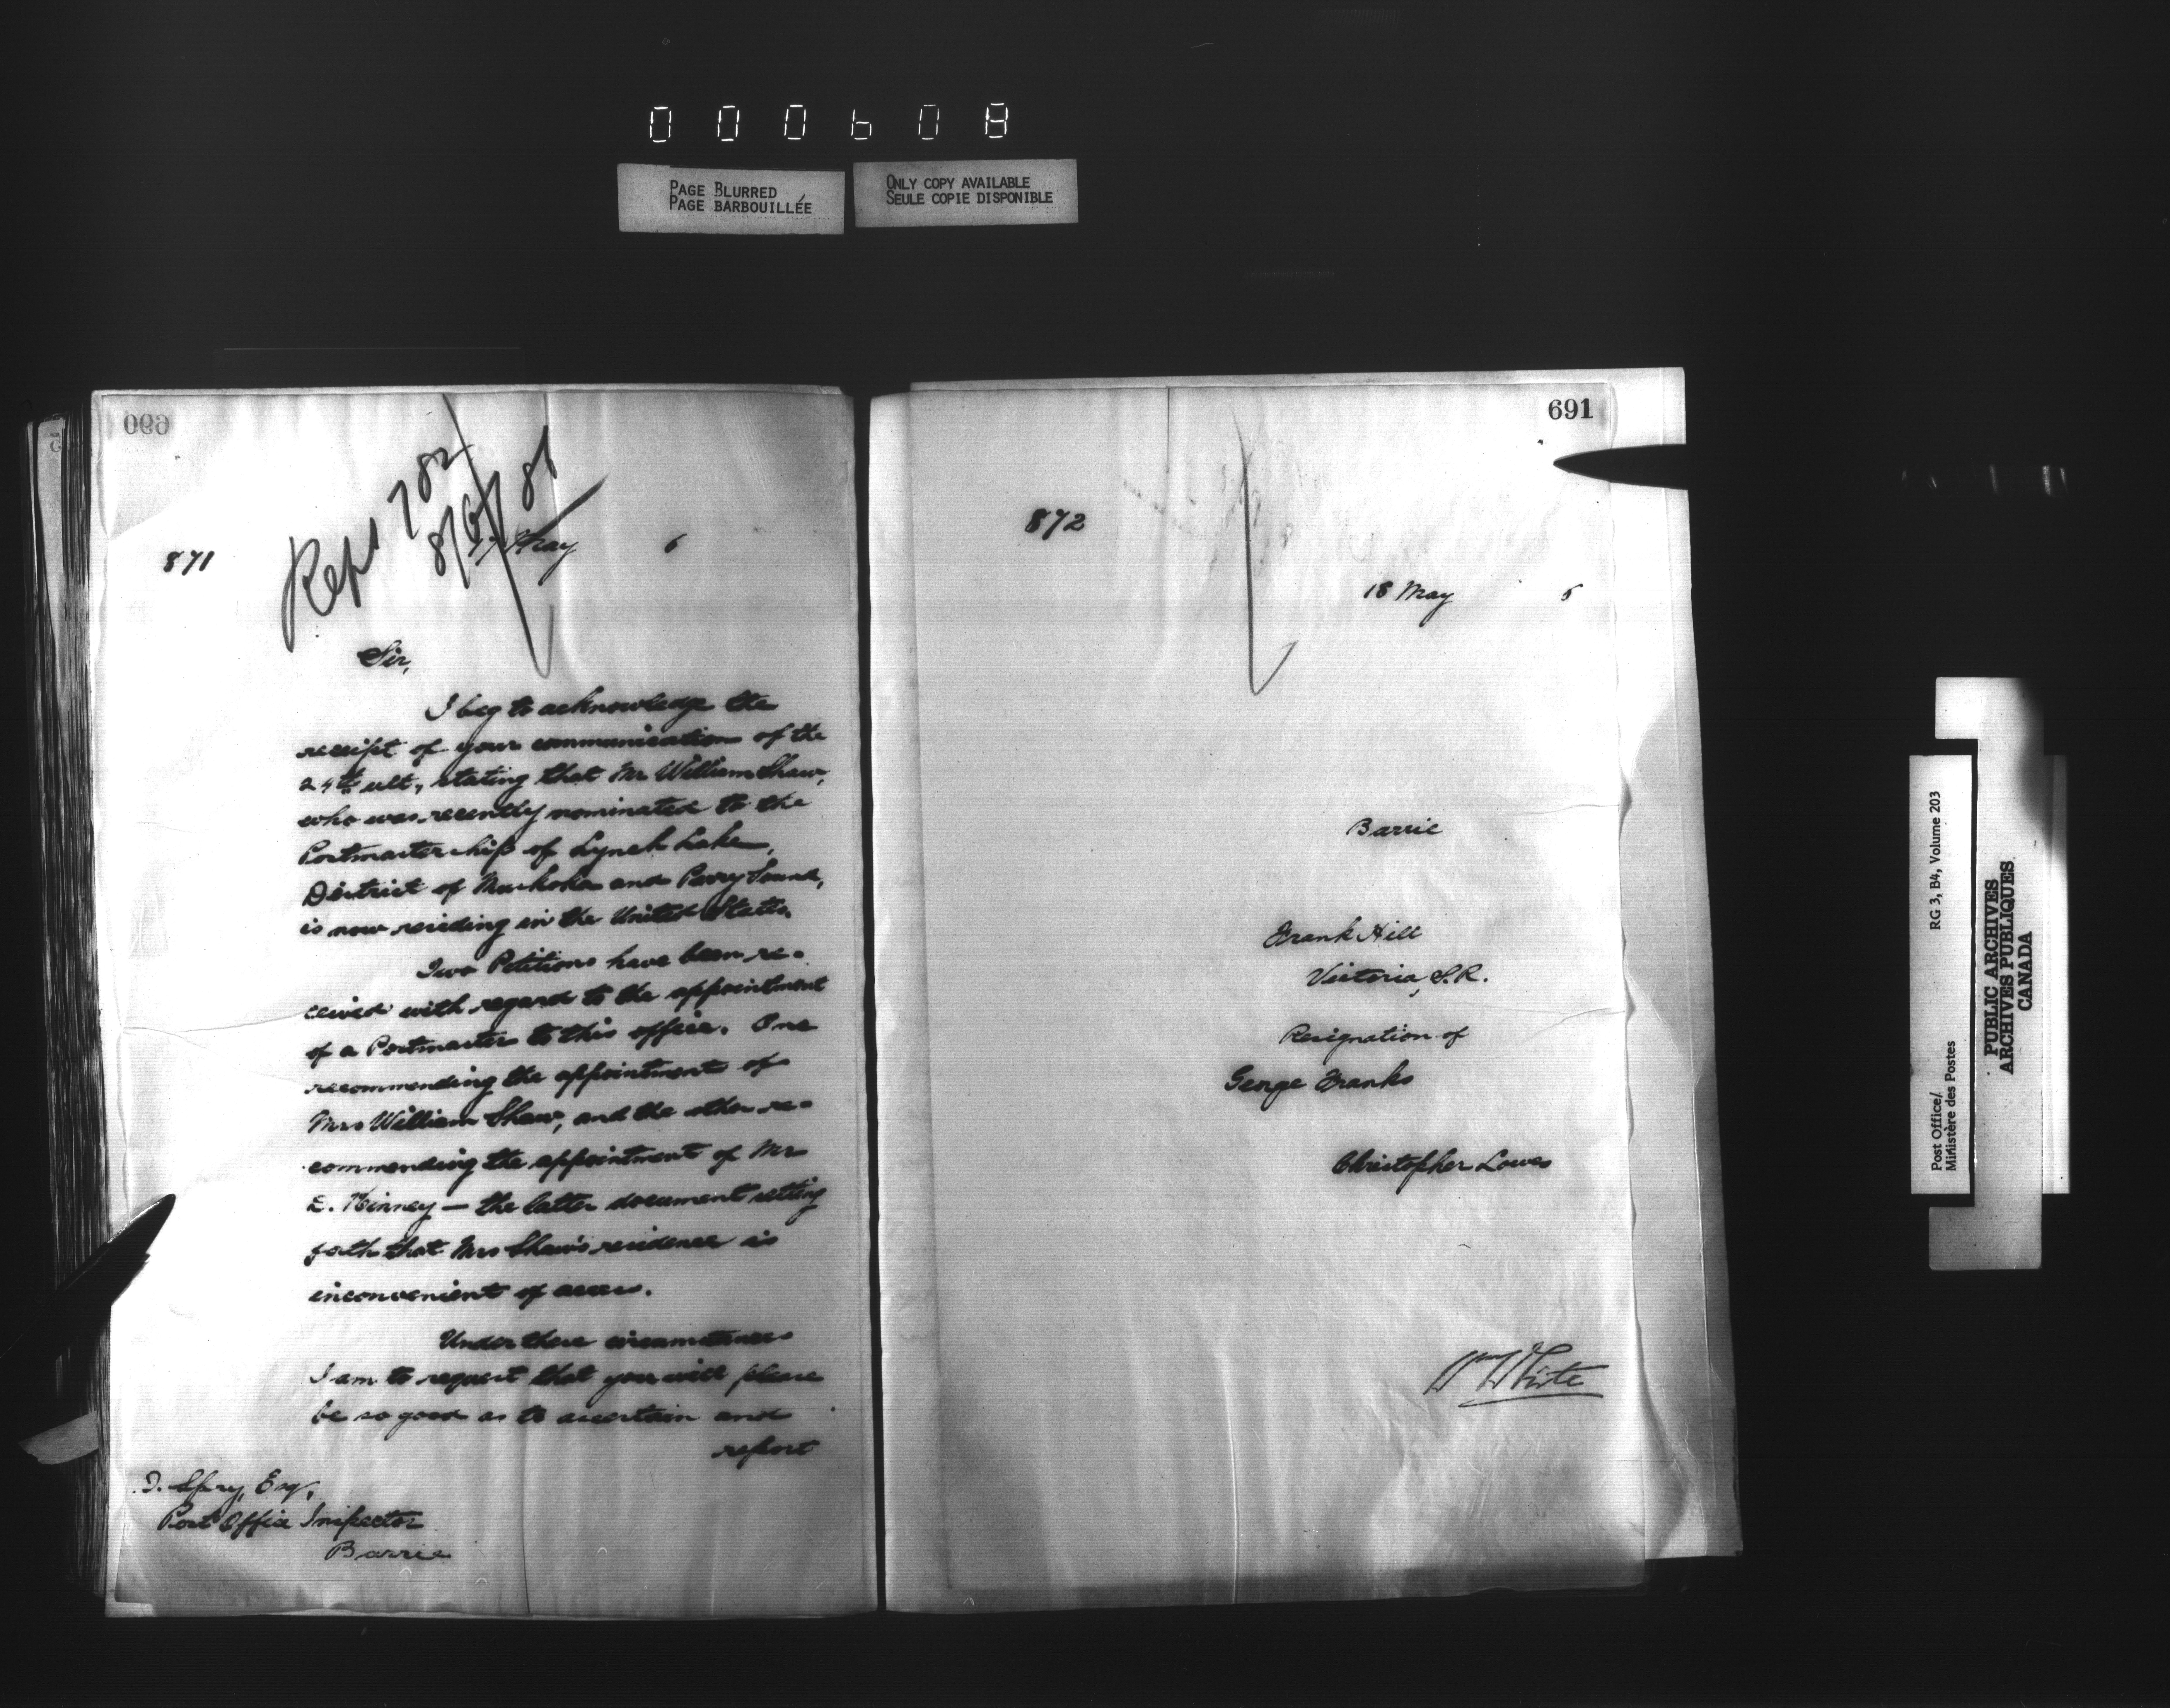 000608
PAGE BLURRED
PAGE BARBOUILLÉE
ONLY COPY AVAILABLE
SEULE COPIE DISPONIBLE
690
871
17 May 6
Sir,
I beg to acknowledge the
receipt of your communication of the
24th ult, stating that Mr William Shaw,
who was recently nominated to the
Postmastership of Lynch Lake,
District of Muskoka and Parry Sound,
is now residing in the United States.
Two Petitions have been re-
ceived with regard to the appointment
of a Postmaster to this office. One
recommending the appointment of
Mrs William Shaw, and the other re-
commending the appointment of Mr
E. Kinney — the latter document setting
forth that Mrs Shaw's residence is
inconvenient of access.
Under these circumstances
I am to request that you will please
be so good as to ascertain and
report
Spry, Esq,
Post Office Inspector
Barrie
691
872
18 May 6
Barrie
Frank Hill
Victoria, S.R.
Resignation of
George Franks
Christopher Lowes
Wm White
Post Office/
Ministère des Postes
RG 3, B4, Volume 203
PUBLIC ARCHIVES
ARCHIVES PUBLIQUES
CANADA